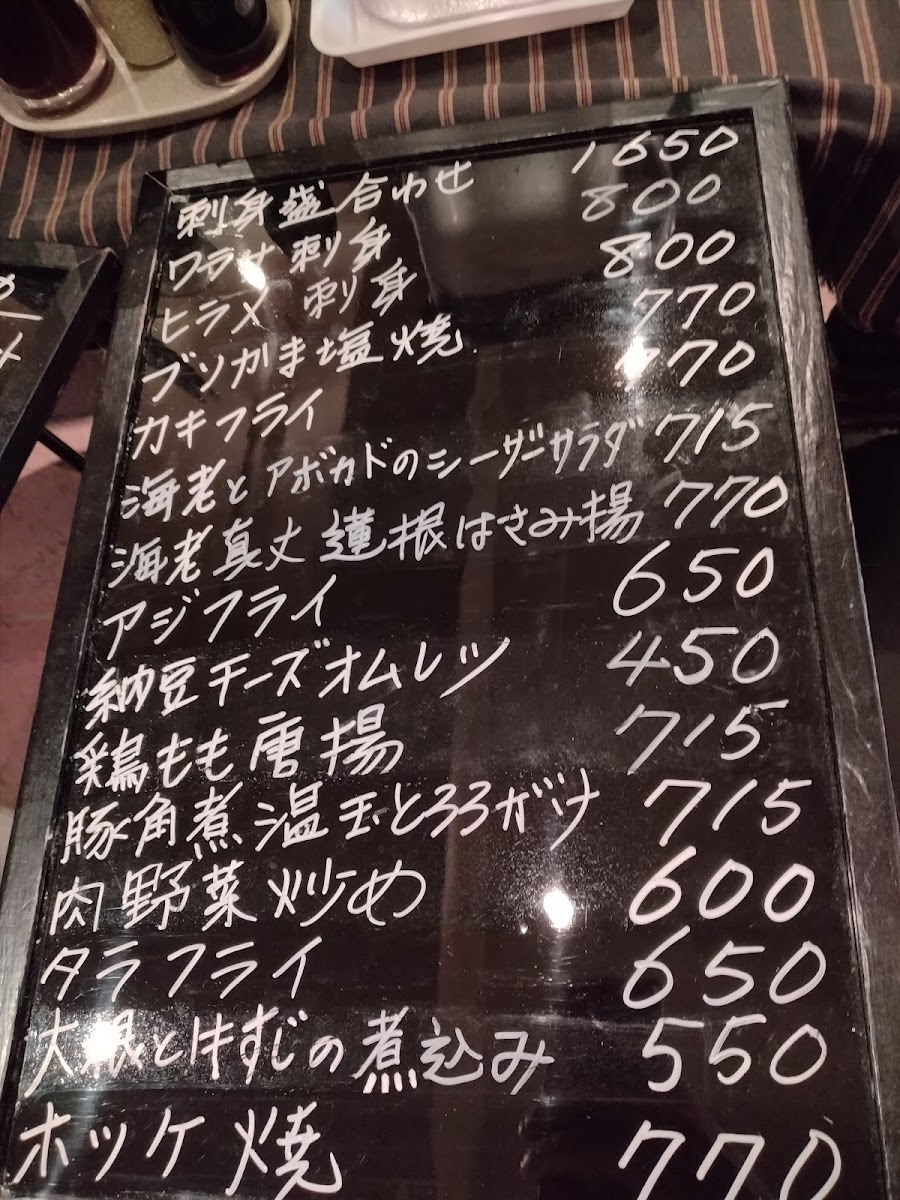 刺身盛合わせ 1650
ワラサ刺身 800
ヒラメ刺身 800
ブリかま塩焼 770
カキフライ 770
海老とアボカドのシーザーサラダ 715
海老真丈蓮根はさみ揚 770
アジフライ 650
納豆チーズオムレツ 450
鶏もも唐揚 715
豚角煮温玉とろろがけ 715
肉野菜炒め 600
タラフライ 650
大根と牛すじの煮込み 550
ホッケ焼 770